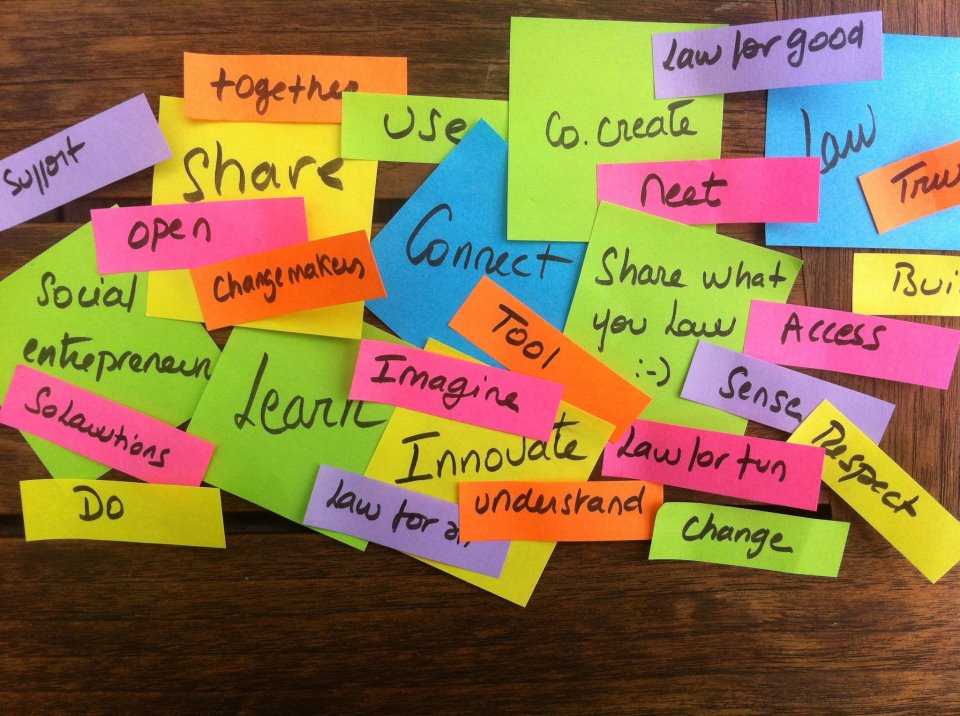 Law for good
together
Use
Co.create
Law
Support
Share
Meet
Open
Connect
Share what
you Law
:-)
Changemakers
Social
entrepreneur
Tool
Access
Imagine
Sense
Learn
Solawtions
Innovate
Law for fun
Respect
Do
Law for
understand
Change